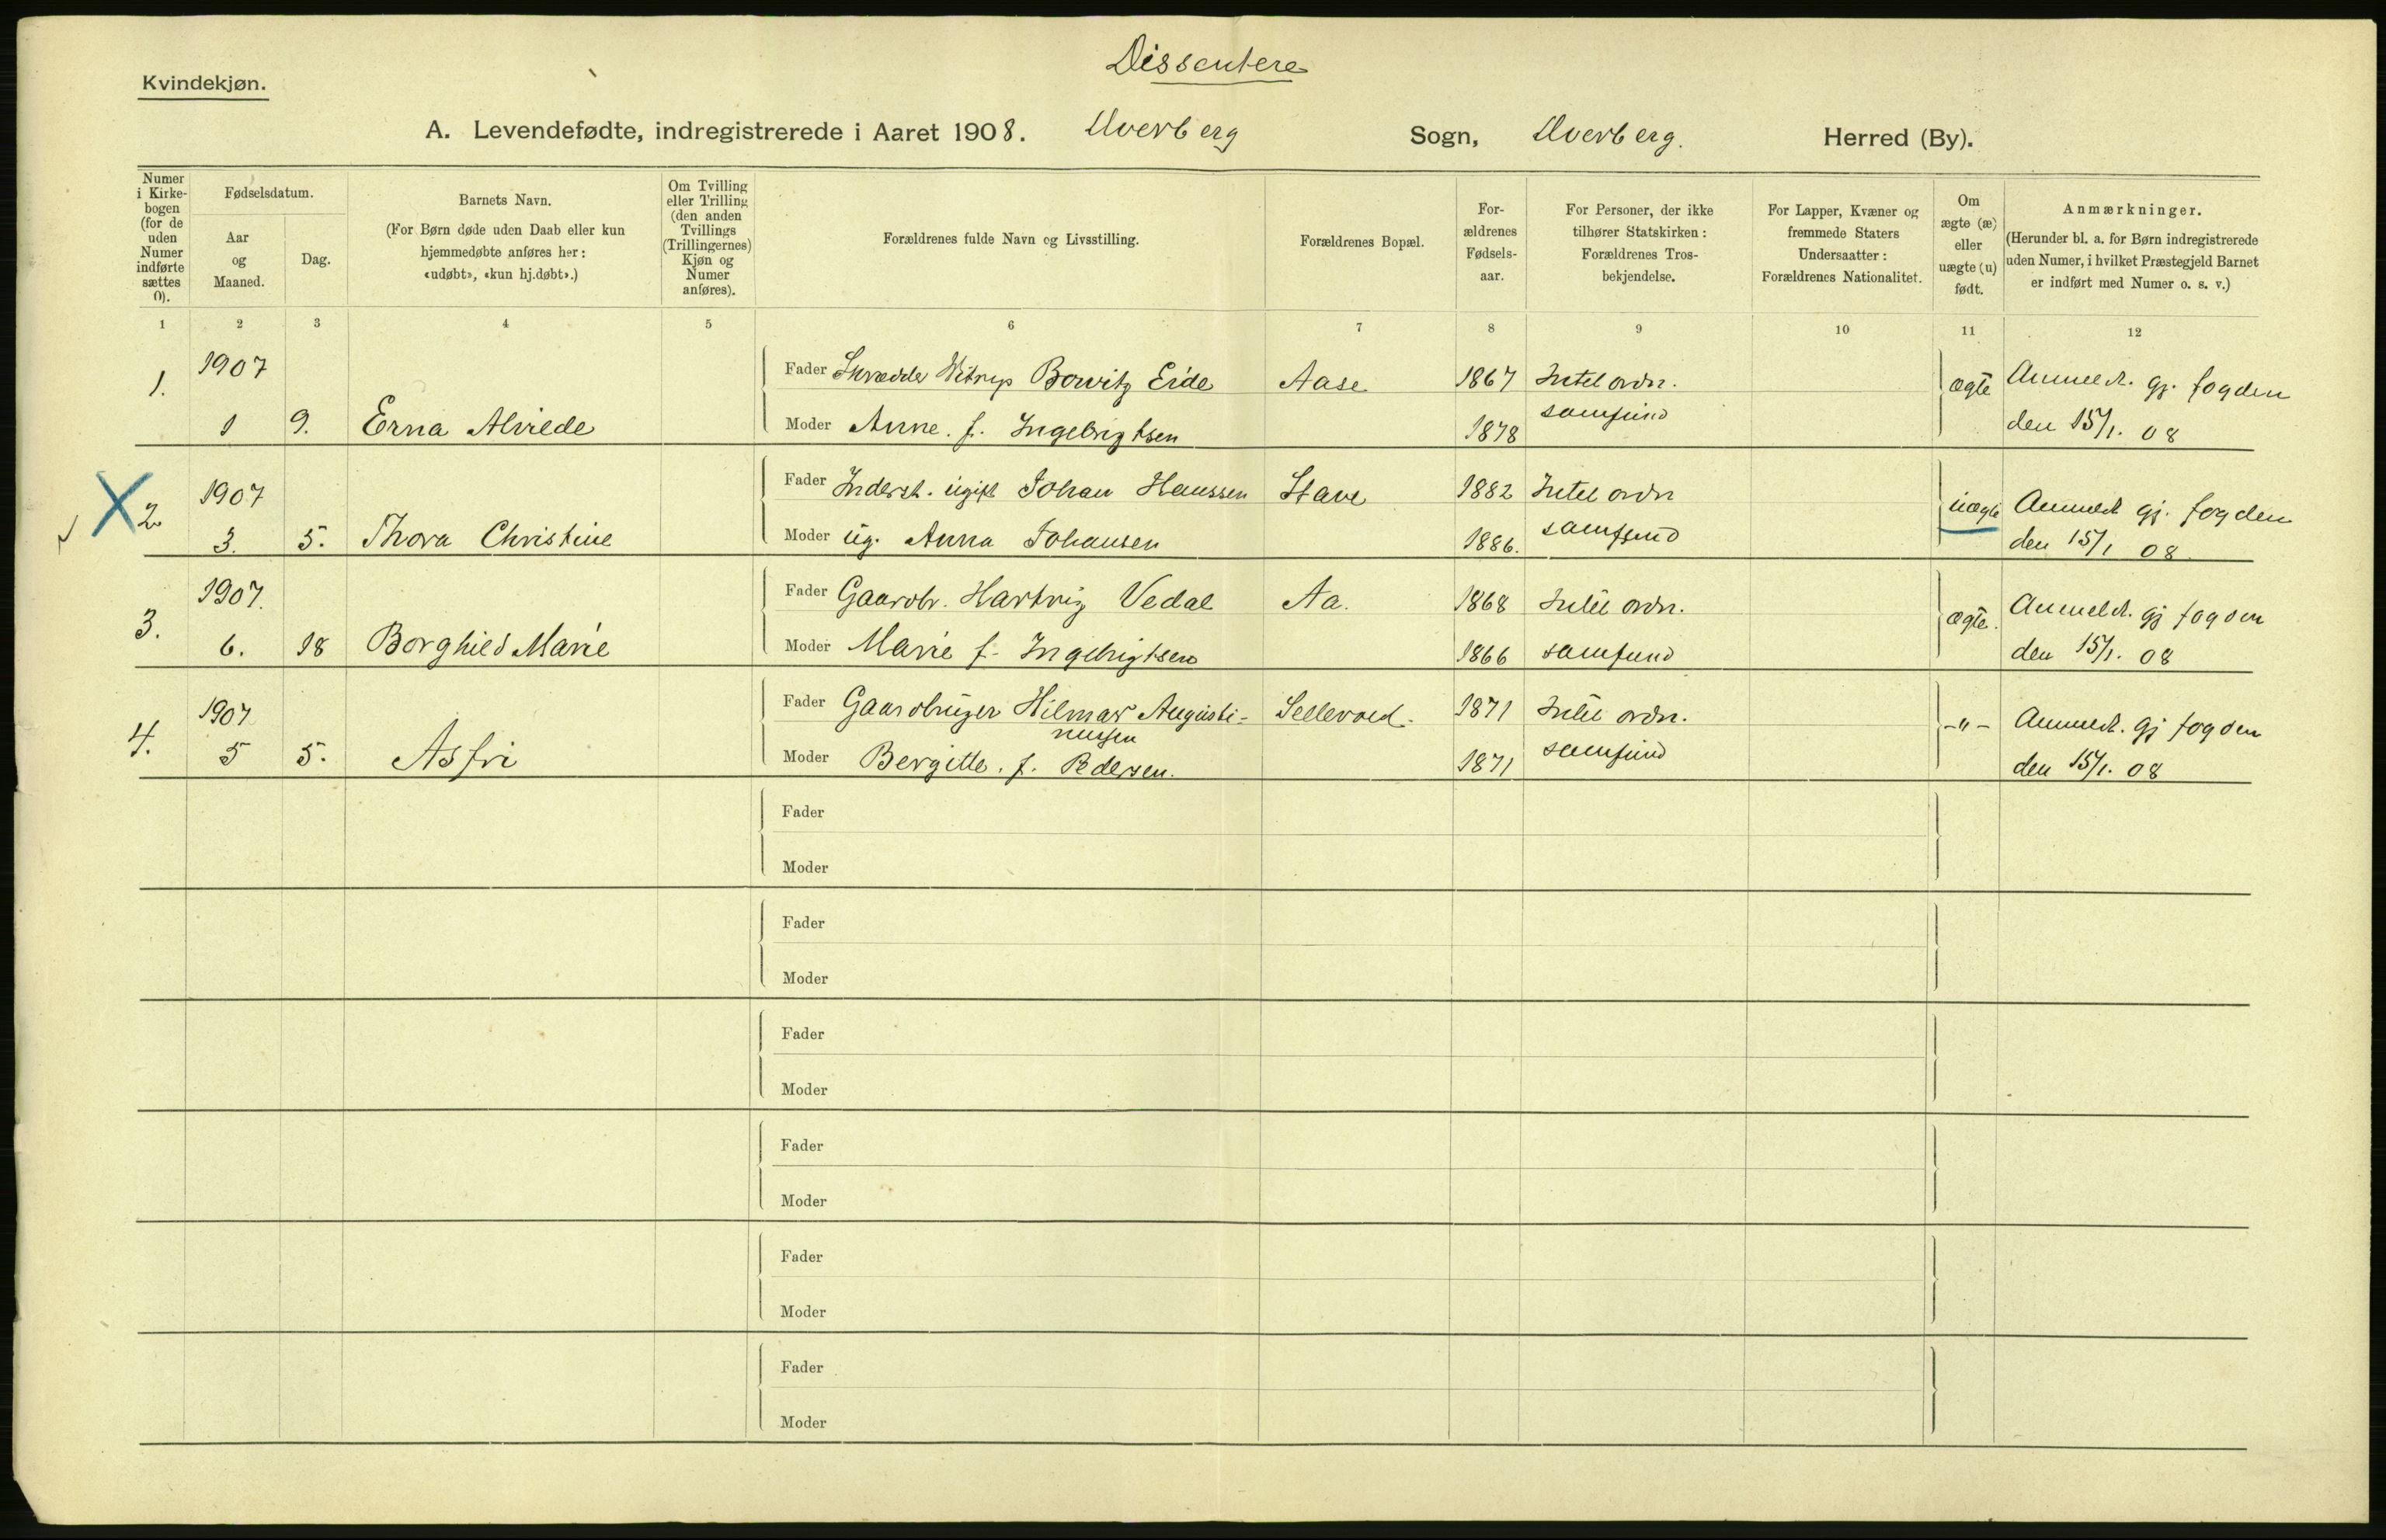 Dissentere
Kvindekjøn.
A. Levendefødte, indregistrerede i Aaret 1908. Dverberg Sogn, Dverberg. Herred (By).
Numer i Kirke-bogen (for de uden Numer indførte sættes 0).
Fødselsdatum.
Aar og Maaned.
Dag.
Barnets Navn.
(For Børn døde uden Daab eller kun
hjemmedøbte anføres her:
«udøbt», «kun hj.døbt».)
Om Tvilling
eller Trilling
(den anden
Tvillings
(Trillingernes)
Kjøn og
Numer
anføres).
Forældrenes fulde Navn og Livsstilling.
Forældrenes Bopæl.
For-
ældrenes
Fødsels-
aar.
For Personer, der ikke
tilhører Statskirken:
Forældrenes Tros-
bekjendelse.
For Lapper, Kvæner og
fremmede Staters
Undersaatter:
Forældrenes Nationalitet.
Om
ægte (æ)
eller
uægte (u)
født.
Anmærkninger.
(Herunder bl. a. for Børn indregistrerede
uden Numer, i hvilket Præstegjeld Barnet
er indført med Numer o. s. v.)
1 2 3 4 5 6 7 8 9 10 11 12
1. 1907 Fader Skrædder Bowitz Eide Aase 1867 Intet ordn. ægte Anmeldt. gj. fogden
1 9. Erna Alvilde Moder Anne. f. Ingebrigtsen 1878 samfund den 15/1. 08
2 1907 Fader Inderst. ugift Johan Hanssen Stave 1882 Intet ordn uægte Anmeldt gj. fogden
3. 5. Thora Christine Moder ug. Anna Johansen 1886. samfund den 15/1 08
3. 1907. Fader Gaardbr. Hartvig Vedal Aa. 1868 Intet ordn. ægte. Anmeldt. gj fogden
6. 18 Borghild Marie Moder Marie f. Ingebrigtsen 1866 samfund den 15/1. 08
4. 1907 Fader Gaardbruger Hilmar Augusti- Sellevold. 1871 Intet ordn. -"- Anmeldt. gj fogden
nussen
5 5. Asfri Moder Bergitte. f. Pedersen. 1871 samfund den 15/1. 08
Fader
Moder
Fader
Moder
Fader
Moder
Fader
Moder
Fader
Moder
Fader
Moder